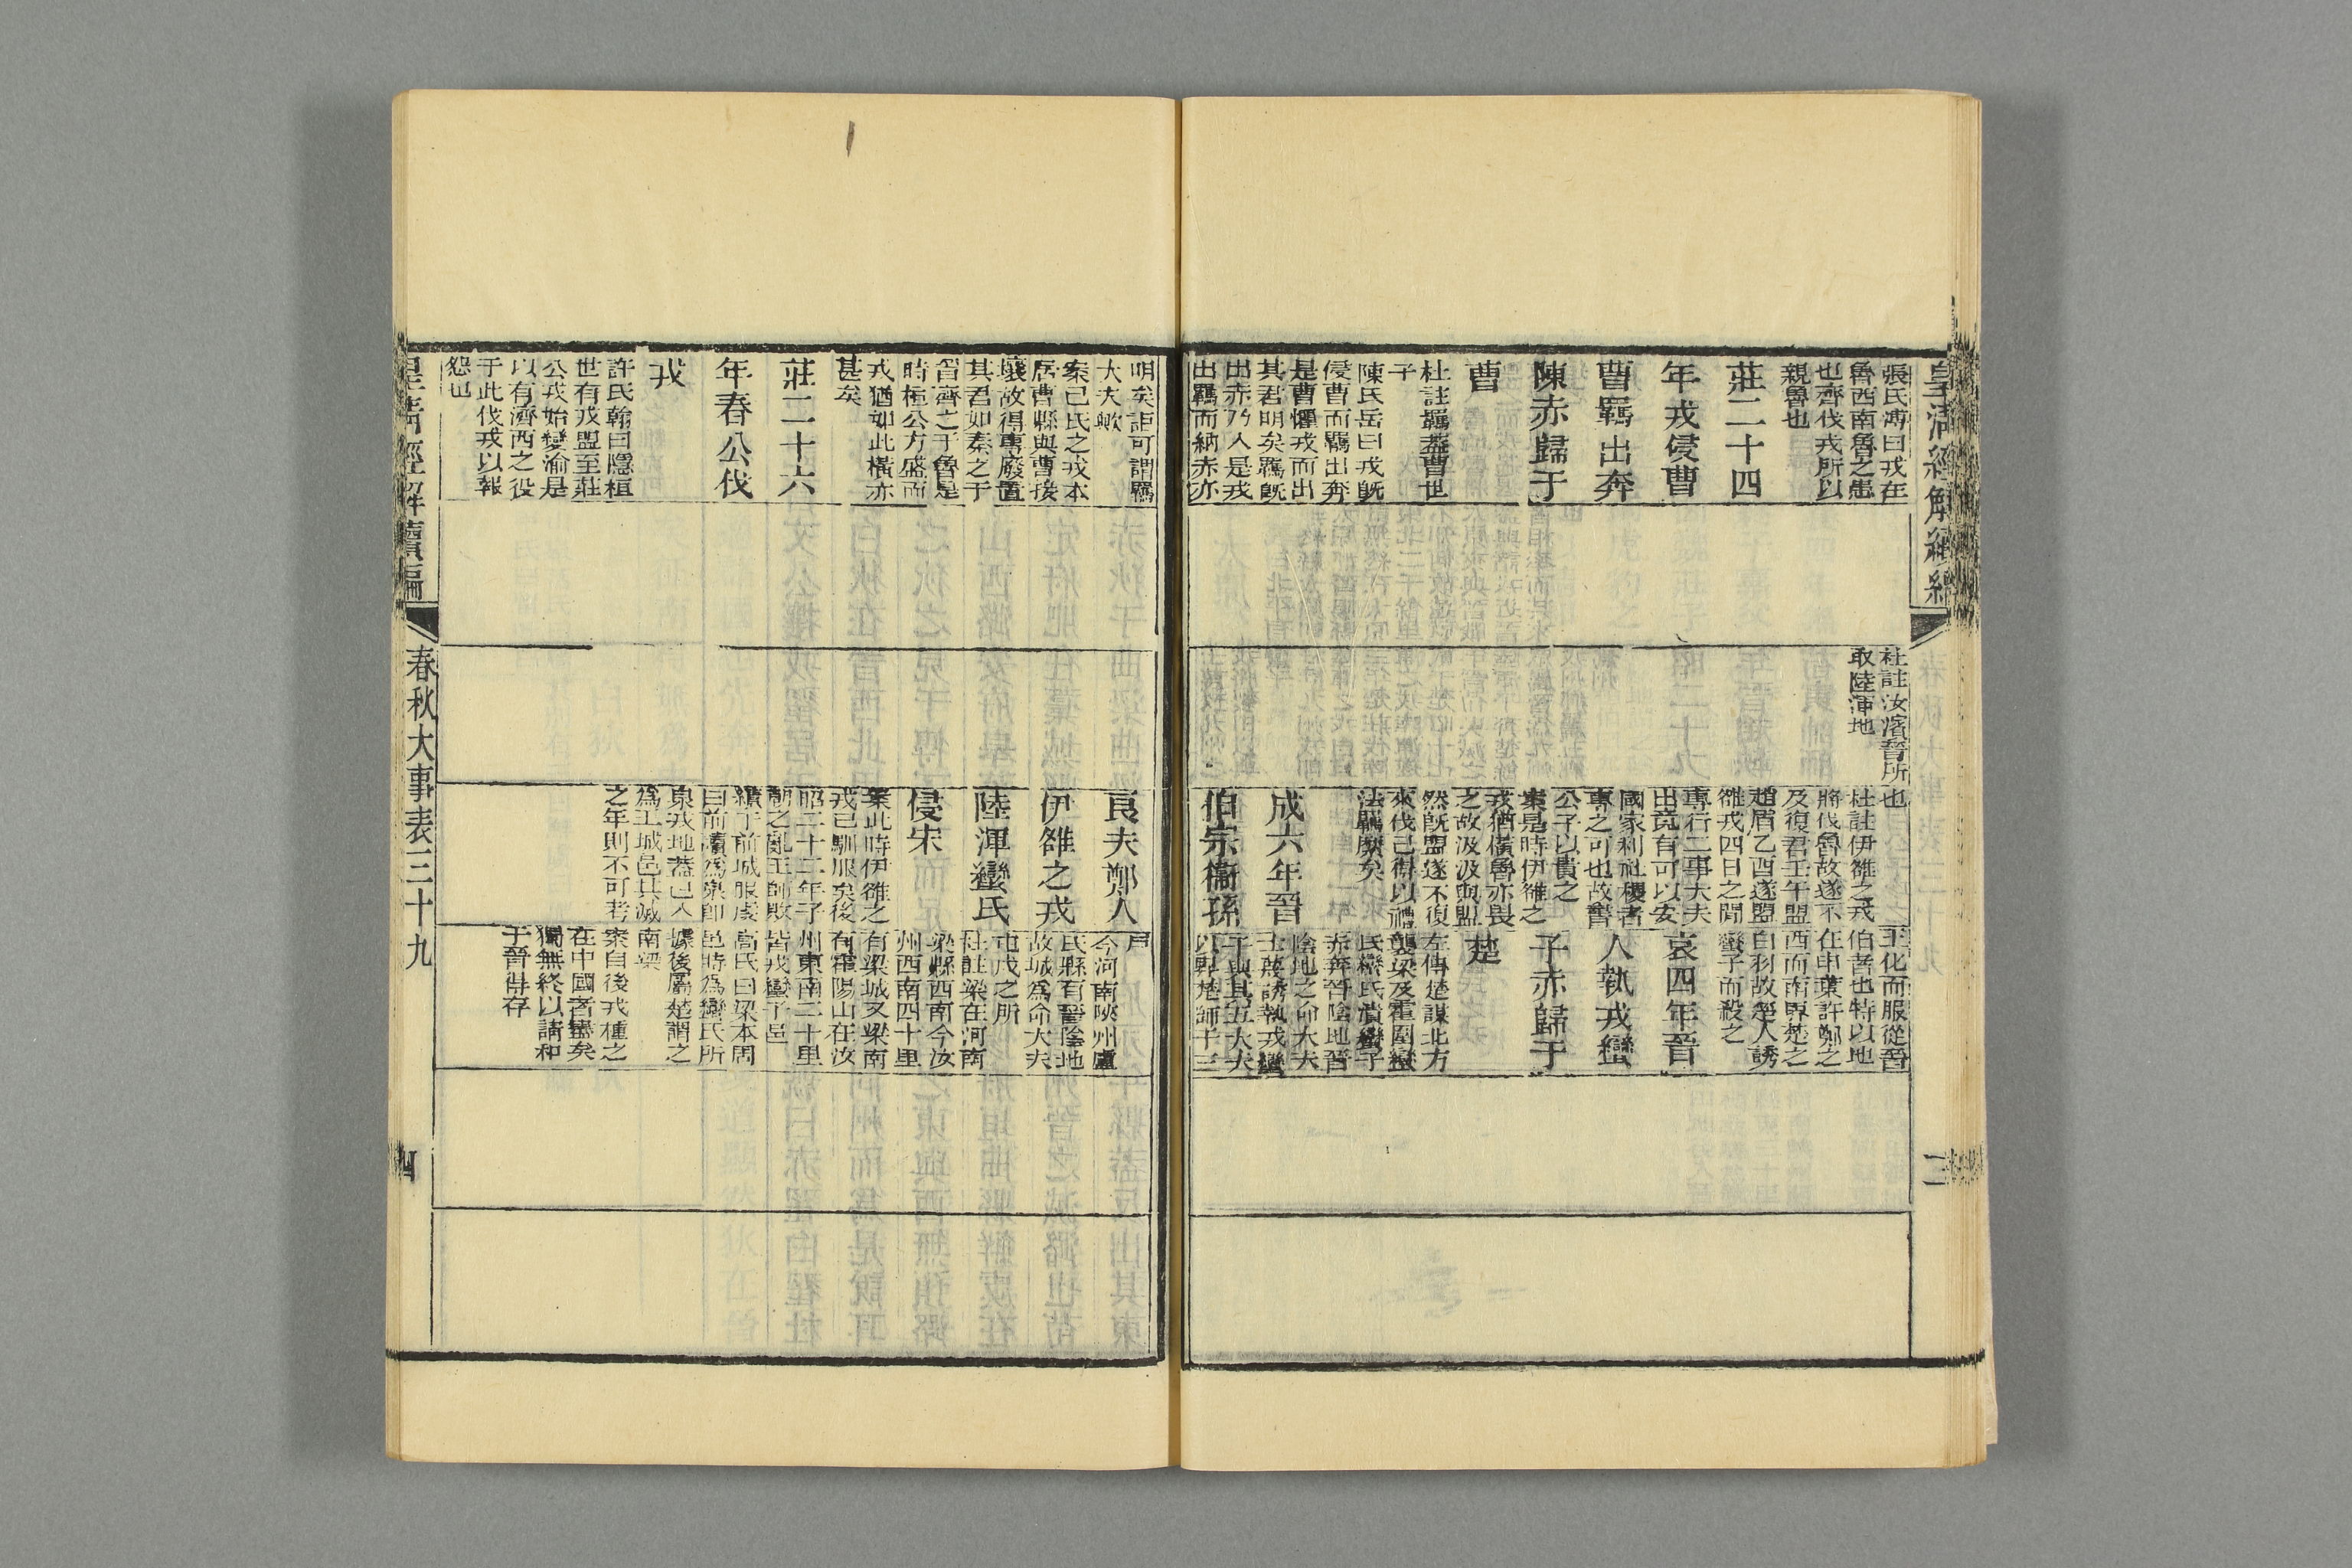 皇清經解續編
張氏溥曰戎在
魯西南魯之患
也齊伐戎所以
親魯也
莊二十四
年戎侵曹
曹羈出奔
陳赤歸于
曹
杜註羈蓋曹世
子
陳氏岳曰戎旣
侵曹而羈出奔
是曹懼戎而出
其君明矣羈旣
出赤乃入是戎
出羈而納赤亦
杜註汝濱晉所
取陸渾地
也
杜註伊雒之戎
將伐魯故遂不
及復君壬午盟
趙盾乙酉遂盟
雒戎四日之間
專行二事大夫
出竟有可以安
國家利社稷者
專之可也故書
公子以貴之
案是時伊雒之
戎猶橫魯亦畏
之故汲汲與盟
然旣盟遂不復
來伐已得以禮
法羈縻矣
成六年晉
伯宗衞孫
王化而服從晉
伯者也特以地
在申葉許鄭之
西而南界楚之
白羽故楚人誘
蠻子而殺之
哀四年晉
人執戎蠻
子赤歸于
楚
左傳楚謀北方
襲梁及霍圍蠻
氏蠻氏潰蠻子
赤奔晉陰地晉
陰地之命大夫
士蔑誘執戎蠻
子與其五大夫
以畀楚師于三
二
明矣詎可謂羈
大夫歟
案己氏之戎本
居曹縣與曹接
壤故得專廢置
其君如秦之于
晉齊之于魯是
時桓公方盛而
戎猶如此橫亦
甚矣
莊二十六
年春公伐
戎
許氏翰曰隱桓
世有戎盟至莊
公戎始變渝是
以有濟西之役
于此伐戎以報
怨也
良夫鄭人
伊雒之戎
陸渾蠻氏
侵宋
案此時伊雒之
戎已馴服矣後
昭二十二年子
朝之亂王師敗
績于前城服虔
曰前讀爲泉卽
泉戎地蓋已入
爲王城邑其滅
之年則不可考
戶
今河南陝州盧
氏縣有晉陰地
故城爲命大夫
屯戍之所
杜註梁在河南
梁縣西南今汝
州西南四十里
有梁城又梁南
有霍陽山在汝
州東南二十里
皆戎蠻子邑
高氏曰梁本周
邑時為蠻氏所
據後屬楚謂之
南梁
案自後戎種之
在中國者盡矣
獨無終以請和
于晉得存
皇清經解續編
春秋大事表三十九
四